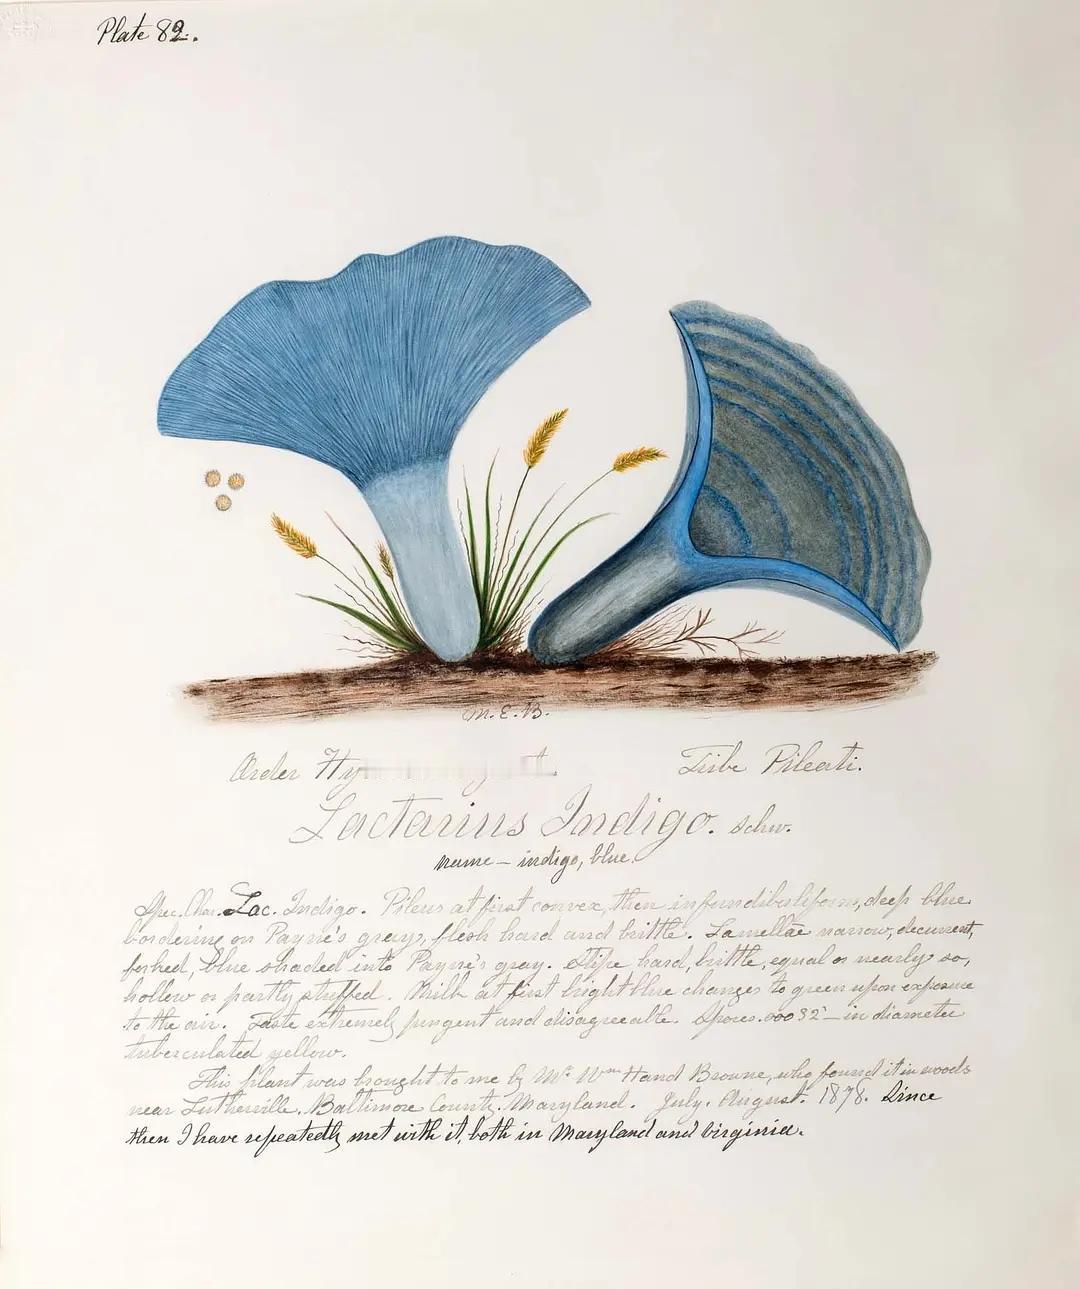 Plate 82.
M. E. B.
Order Hy
Tribe Pileati.
Lactarius Indigo. Schw.
name — indigo, blue.
Spec. Char. Lac. Indigo. Pileus at first convex, then infundibuliform, deep blue
bordering on Payne's gray, flesh hard and brittle. Lamellae narrow, decurrent,
forked, blue shaded into Payne's gray. Stipe hard, brittle, equal or nearly so,
hollow or partly stuffed. Milk at first bright blue changes to green upon exposure
to the air. Taste extremely pungent and disagreeable. Spores .00032 — in diameter
tuberculated yellow.
This plant was brought to me by Mr Wm Hand Browne, who found it in woods
near Lutherville, Baltimore County, Maryland. July, August. 1878. Since
then I have repeatedly met with it, both in Maryland and Virginia.